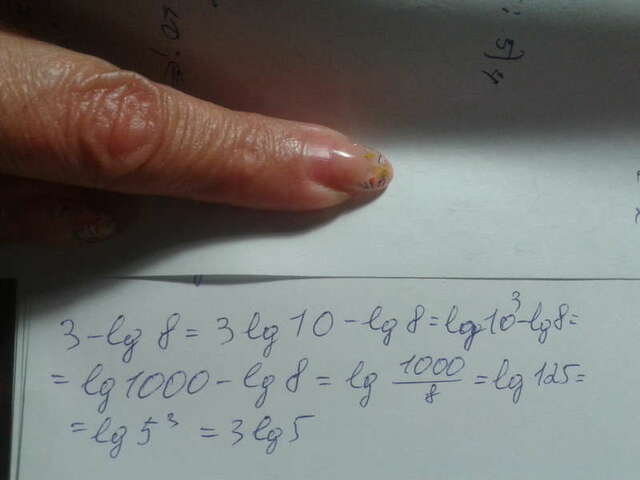 5) 4
3 - lg 8 = 3 lg 10 - lg 8 = lg 10³ - lg 8 =
= lg 1000 - lg 8 = lg 1000/8 = lg 125 =
= lg 5³ = 3 lg 5